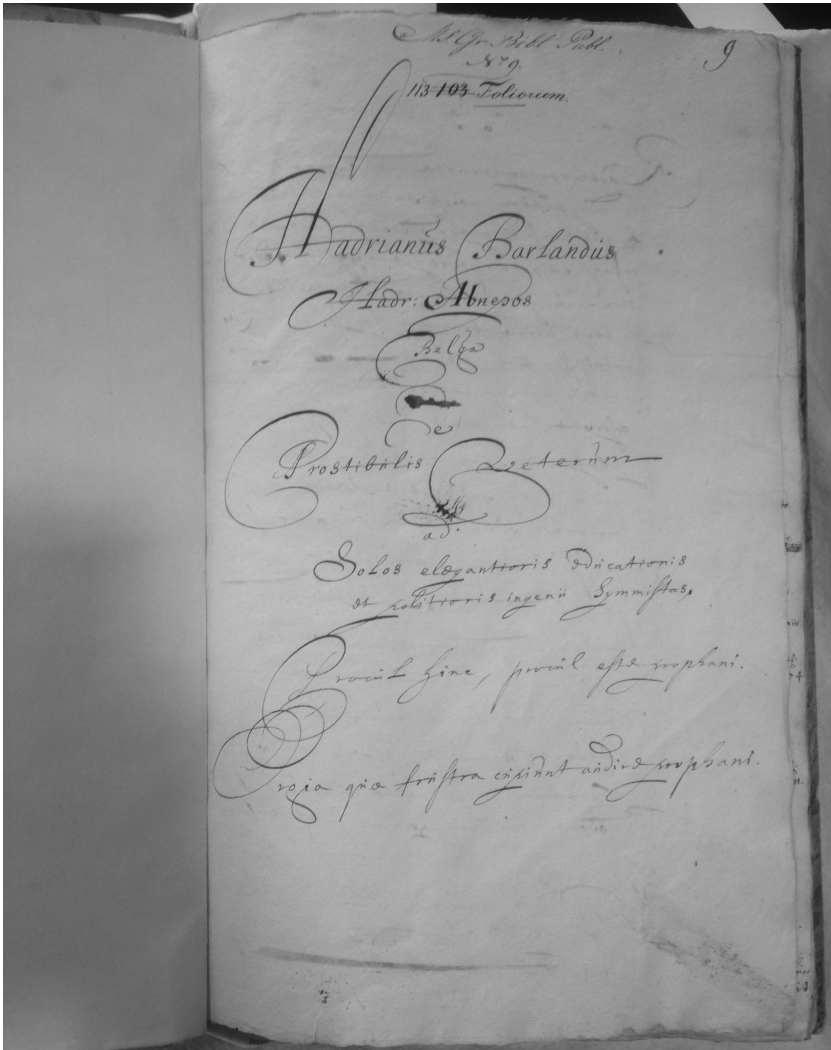 MS Gr. Bibl. Publ.
9
No 9.
113 103 Foliorum.
Hadrianus Barlandus
Hadr: Abnepos
Belga
De
Prostibulis Veterum
ad.
Solos elegantioris educationis
et politioris ingenii Symmistas,
Procul hinc, procul este prophani.
Orgia quæ frustra cupiunt audire prophani.